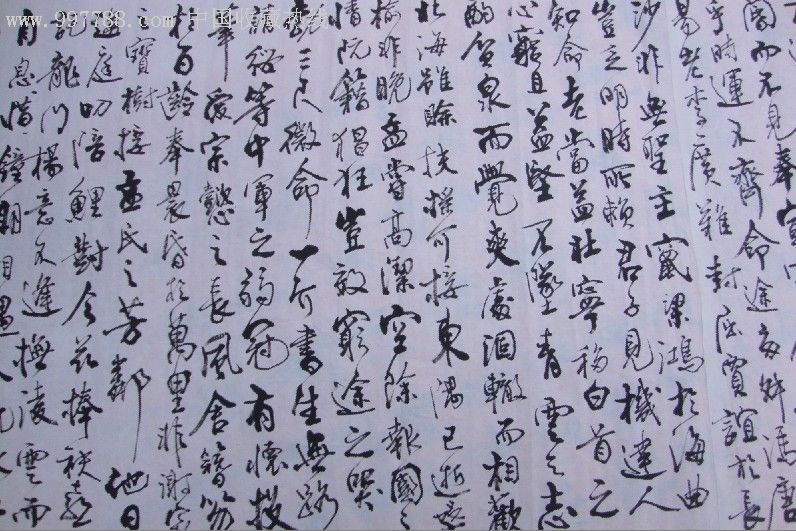 閽而不見奉宣
乎時運不齊命途多舛馮唐
易老李廣難封屈賈誼於長
沙非無聖主竄梁鴻於海曲
豈乏明時所賴君子見機達人
知命老當益壯寧移白首之
心窮且益堅不墜青雲之志
酌貪泉而覺爽處涸轍而相歡
北海雖賒扶搖可接東隅已逝桑
榆非晚孟嘗高潔空餘報國之
情阮籍猖狂豈效窮途之哭
勃三尺微命一介書生無路
請纓等中軍之弱冠有懷投
筆愛宗慤之長風舍簪笏
於百齡奉晨昏於萬里非謝家
之寶樹接孟氏之芳鄰他日
趨庭叨陪鯉對今茲捧袂喜
託龍門楊意不逢撫凌雲而
自惜鐘期相遇
www.997788.com 中国收藏热线